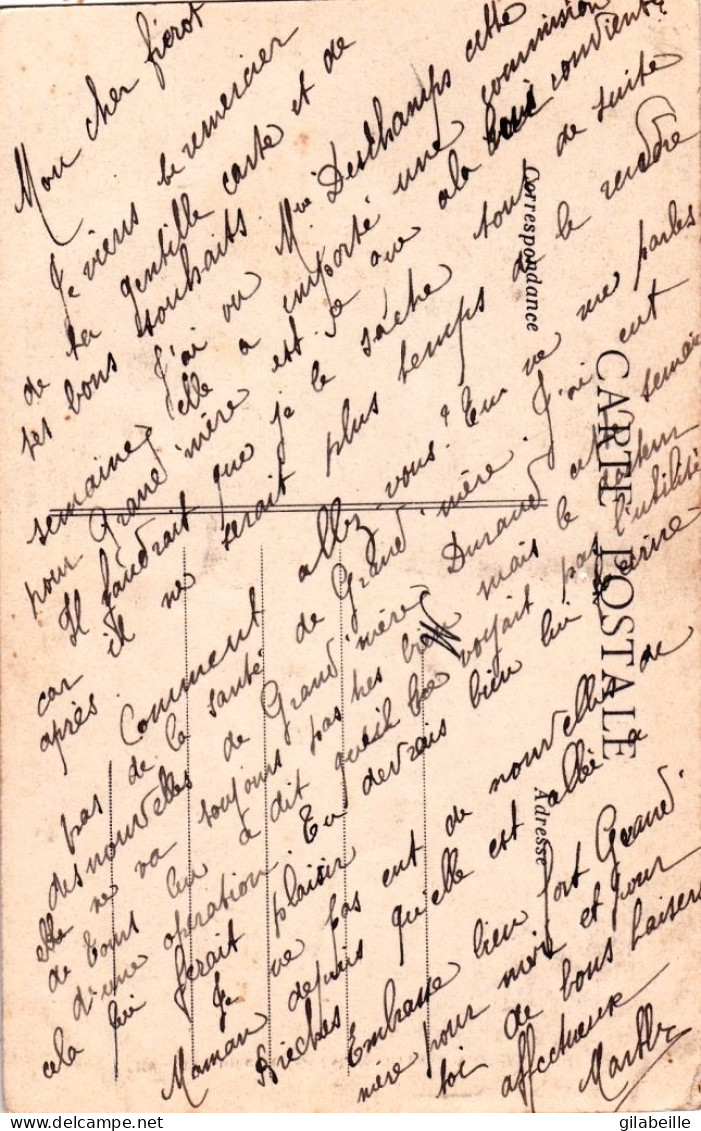 Mon cher fierot
Je viens te remercier
de ta gentille carte et de
tes bons souhaits. J'ai vu Mme Deschamps cette
semaine, elle a emporté une commission
pour Grand'mère est-ce que a la convient?
Il faudrait que je le sache tout de suite
car il ne serait plus temps de le rendre
après. Comment allez-vous? Tu ne me parles
pas de la santé de Grand'mère. J'ai eut
des nouvelles de Grand'mère Durand cet semaine
elle ne va toujours pas très bien mais le
de Tours lui a dit qu'il ne voyait pas l'utilité
d'une opération. Tu devrais bien lui écrire
cela lui ferait plaisir
Je ne pas eut de nouvelles de
Maman depuis qu'elle est allée à
Embrasse bien fort Grand.
mère pour moi et pour
toi de bons baisers
affectueux
Marthe
CARTE POSTALE
Correspondance
Adresse
gilabeille